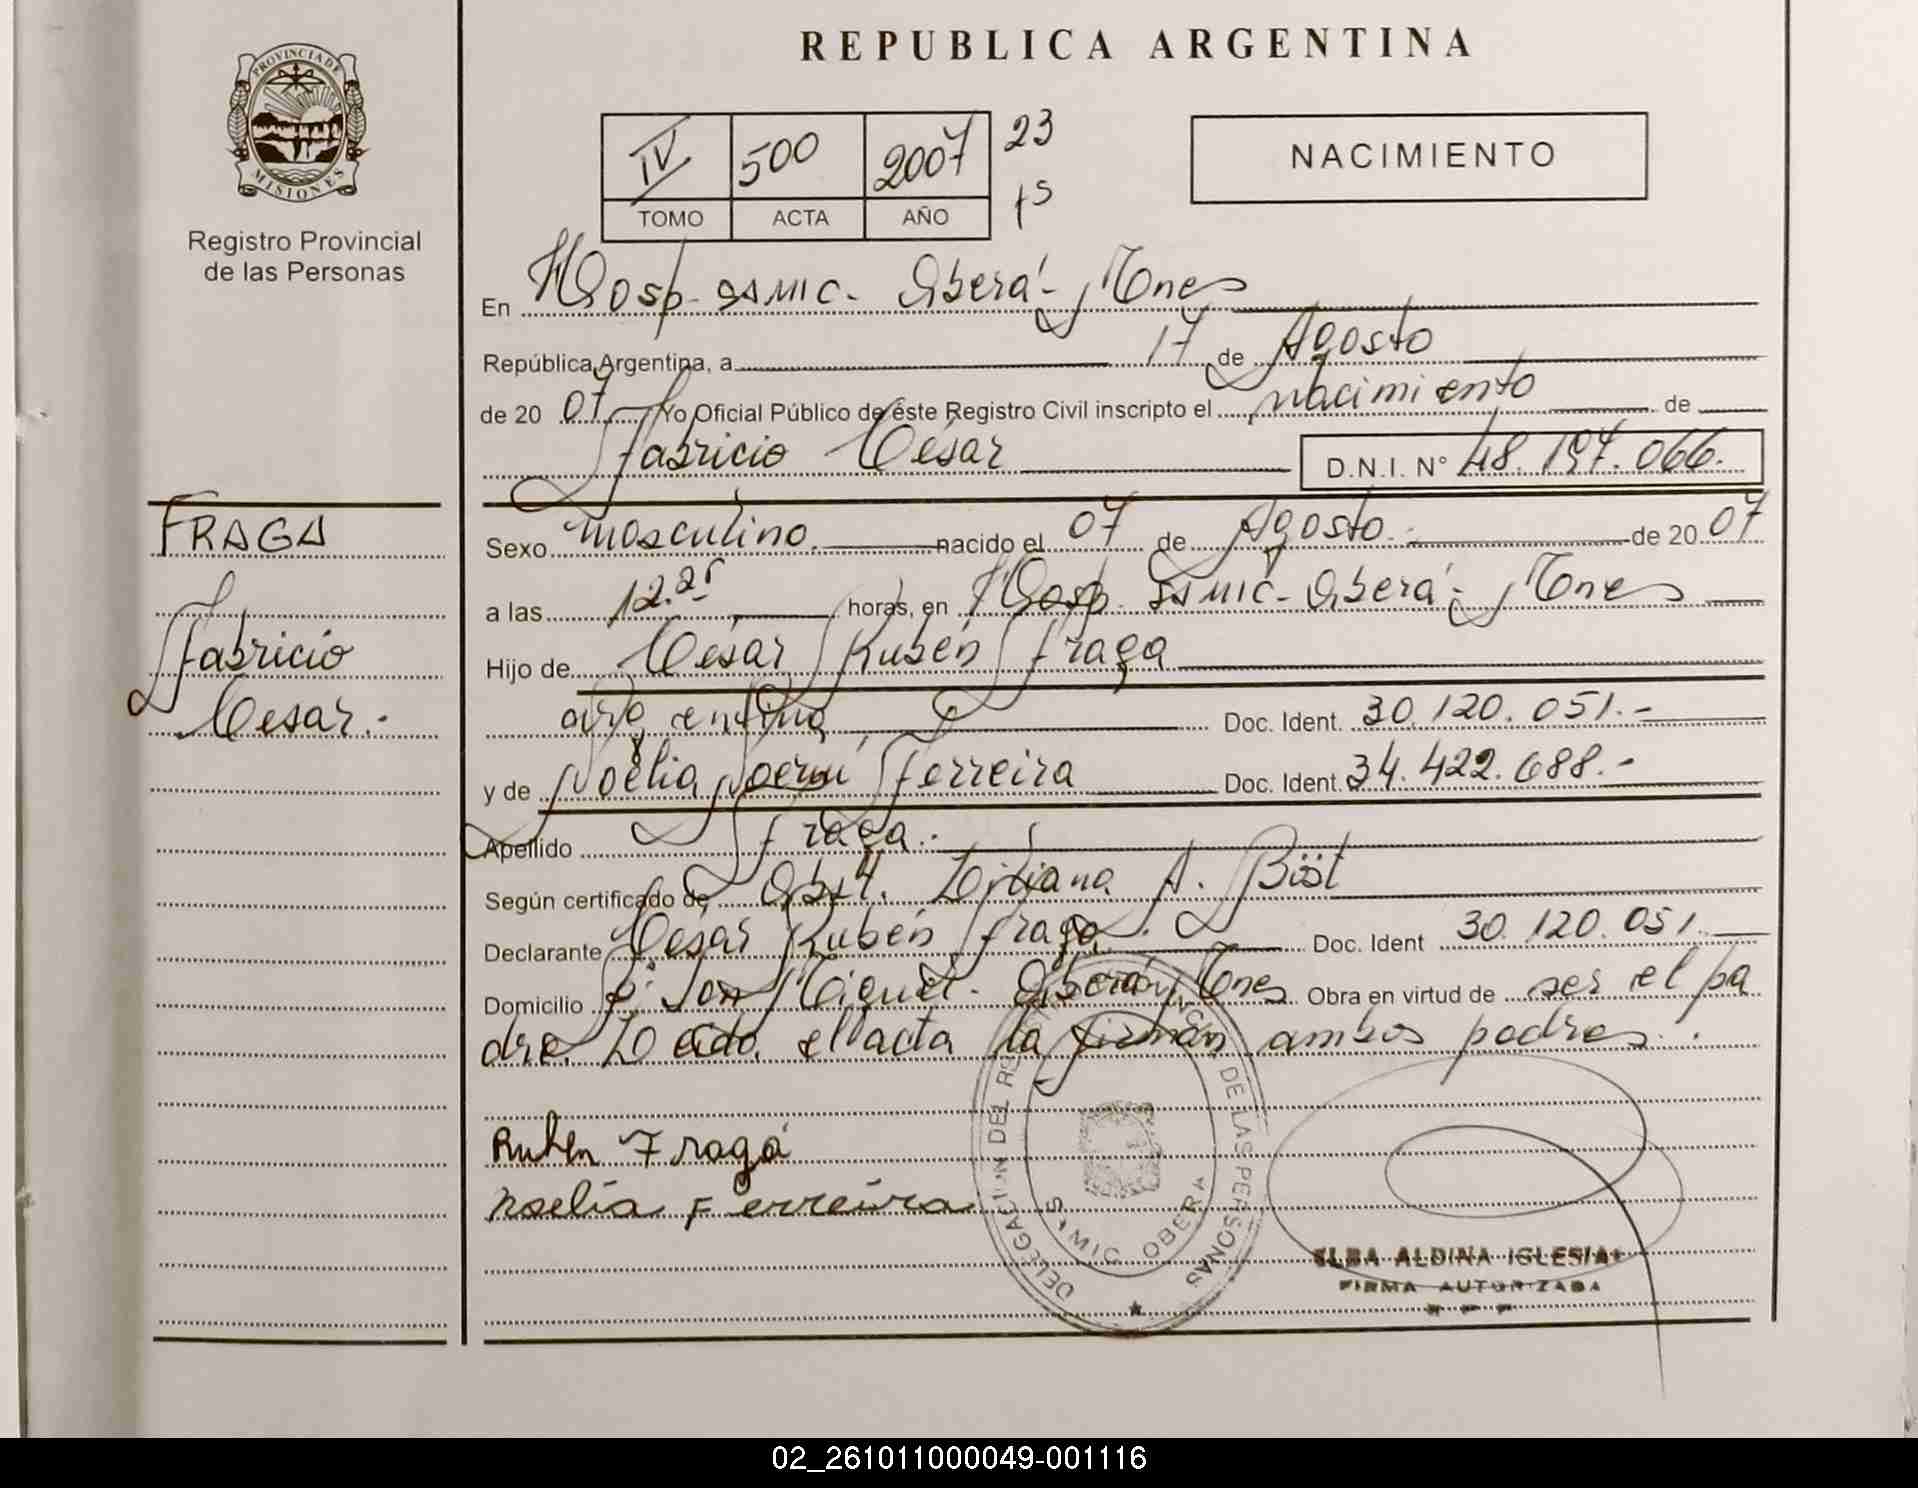 PROVINCIA DE
MISIONES
Registro Provincial
de las Personas
REPUBLICA ARGENTINA
IV 500 2007 23
TOMO ACTA AÑO 15
NACIMIENTO
En Hosp. SAMIC. Oberá - Mnes
República Argentina, a 17 de Agosto
de 20 07 Yo Oficial Público de éste Registro Civil inscripto el nacimiento de
Fabricio César D.N.I. N° 48.197.066.
FRAGA
Fabricio
César.
Sexo masculino. nacido el 07 de Agosto. de 20 07
a las 12.25 horas, en Hosp. SAMIC - Oberá - Mnes
Hijo de César Rubén Fraga
argentina Doc. Ident. 30.120.051.-
y de Noelia Noemí Ferreira Doc. Ident. 34.422.688.-
Apellido Fraga.
Según certificado de Obst. Liliana A. Böst
Declarante César Rubén Fraga. Doc. Ident 30.120.051.
Domicilio San Miguel. Oberá Mnes Obra en virtud de ser el pa
dre. Leída el acta la firman ambos padres.
Ruben Fraga
Noelia Ferreira
DELEGACION DEL DE LAS PERSONAS
SAMIC OBERA
ELBA ALDINA IGLESIAS
FIRMA AUTORIZADA
02_261011000049-001116